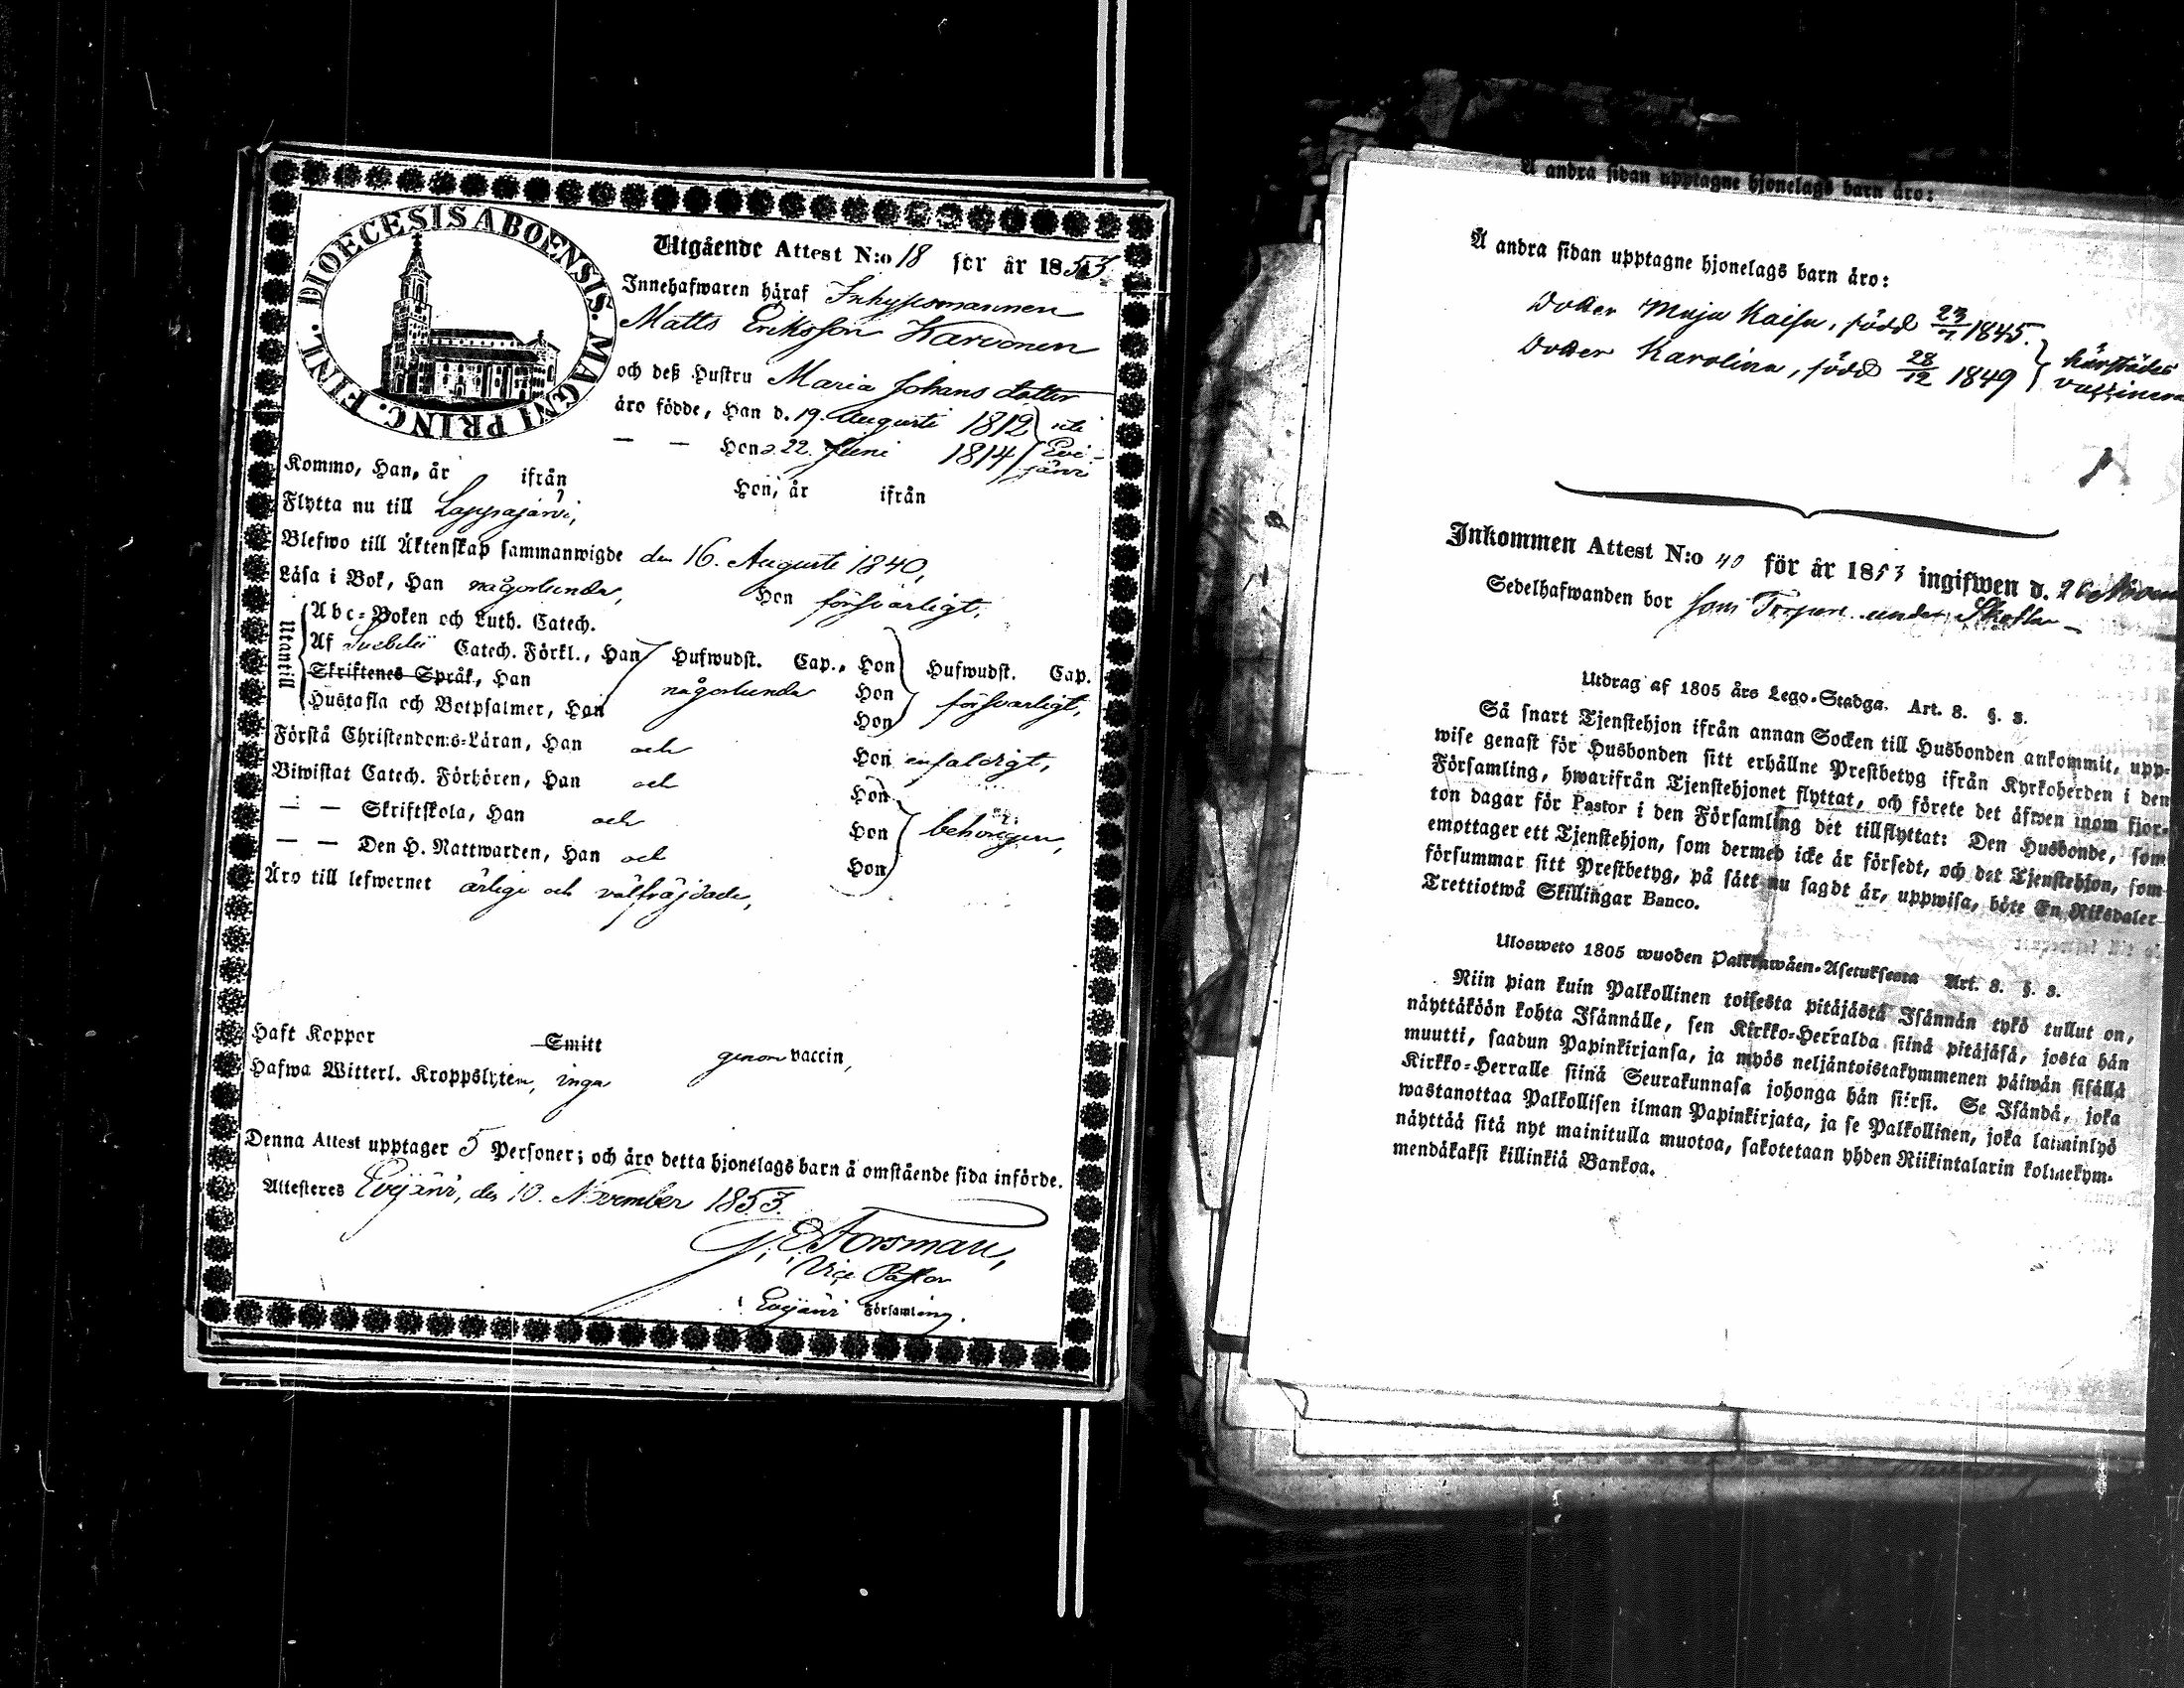 DIOECESIS ABOENSIS. MAGNI PRINC. FINL.
Utgående Attest N:o 18 för år 1853.
Innehafwaren häraf Inhysesmannen
Matts Eriksson Karvonen
och deß Hustru Maria Johans dotter
äro födde, Han d. 19. Augusti 1812 uti
— — Hon d. 22. Juni 1814 Evi-
järvi
Kommo, Han, år ifrån Hon, år ifrån
Flytta nu till Lappajärvi,
Blefwo till Äktenskap sammanwigde den 16. Augusti 1840,
Läsa i Bok, Han någorlunda, Hon försvarligt,
Utantill
Abc-Boken och Luth. Catech.
Af Svebelii Catech. Förkl., Han Hufwudst. Cap., Hon Hufwudst. Cap.
Skriftenes Språk, Han någorlunda Hon försvarligt,
Hustafla och Botpsalmer, Han Hon
Förstå Christendoms-Läran, Han och Hon enfaldigt,
Biwistat Catech. Förhören, Han och Hon
— — Skriftskola, Han och Hon behörigen,
— — Den H. Nattwarden, Han och Hon
Äro till lefwernet ärliga och välfräjdade,
Haft Koppor Smitt genom vaccin,
Hafwa Witterl. Kroppslyten, inga
Denna Attest upptager 5 Personer; och äro detta hjonelags barn å omstående sida införde.
Attesteres Evijärvi, den 10. November 1853.
G. E. Forsman,
Vice Pastor
Evijärvi Församling.
Å andra sidan upptagne hjonelags barn äro:
Å andra sidan upptagne hjonelags barn äro:
Dotter Maja Kaisa, född 23/7 1845.
Dotter Karolina, född 28/12 1849
härstädes
Inkommen Attest N:o 40 för år 1853 ingifwen d. 26
Sedelhafwanden bor som under
Utdrag af 1805 års Lego-Stadga. Art. 8. §. 3.
Så snart Tjenstehjon ifrån annan Socken till Husbonden ankommit, upp-
wise genast för Husbonden sitt erhållne Prestbetyg ifrån Kyrkoherden i den
Församling, hwarifrån Tjenstehjonet flyttat, och förete det äfwen inom fjor-
ton dagar för Pastor i den Församling det tillflyttat: Den Husbonde, som
emottager ett Tjenstehjon, som dermed icke är försedt, och det Tjenstehjon, som
försummar sitt Prestbetyg, på sätt nu sagdt är, uppwisa, böte En Riksdaler
Trettiotwå Skillingar Banco.
Ulosweto 1805 wuoden Palkkawäen-Asetuksesta Art. 8. §. 3.
Niin pian kuin Palkollinen toisesta pitäjästä Isännän tykö tullut on,
näyttäköön kohta Isännälle, sen Kirkko-Herralda siinä pitäjäsä, josta hän
muutti, saadun Papinkirjansa, ja myös neljäntoistakymmenen päiwän sisällä
Kirkko-Herralle siinä Seurakunnasa johonga hän siirsi. Se Isändä, joka
wastanottaa Palkollisen ilman Papinkirjata, ja se Palkollinen, joka laiminlyö
näyttää sitä nyt mainitulla muotoa, sakotetaan yhden Riikintalarin kolmekym-
mendäkaksi killinkiä Bankoa.